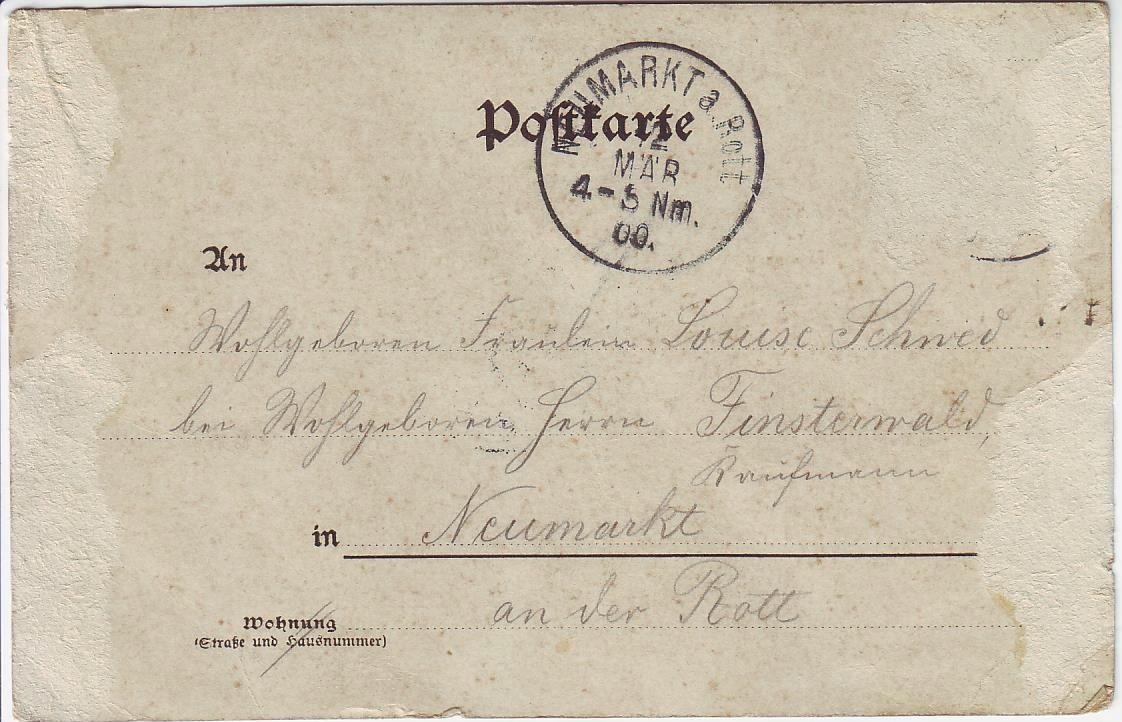 Postkarte
NEUMARKT a. Rott
12
MÄR
4-5 Nm.
00.
An
Wohlgeboren Fräulein Louise Schwed
bei Wohlgeboren Herrn Finsterwald,
Kaufmann
in Neumarkt
an der Rott
Wohnung
(Straße und Hausnummer)